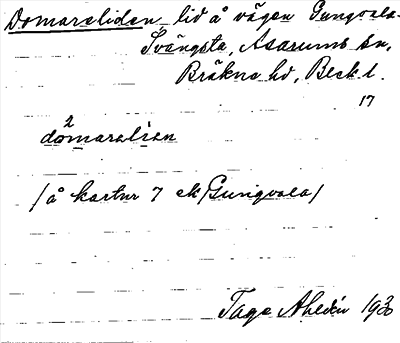 Domareliden lid å vägen Gungvala-
Svängsta, Asarums sn,
Bräkne hd, Blek. l.
17
2
dömarelien
/å kartur 7 ek/Gungvala/
Tage Ahldén 1930